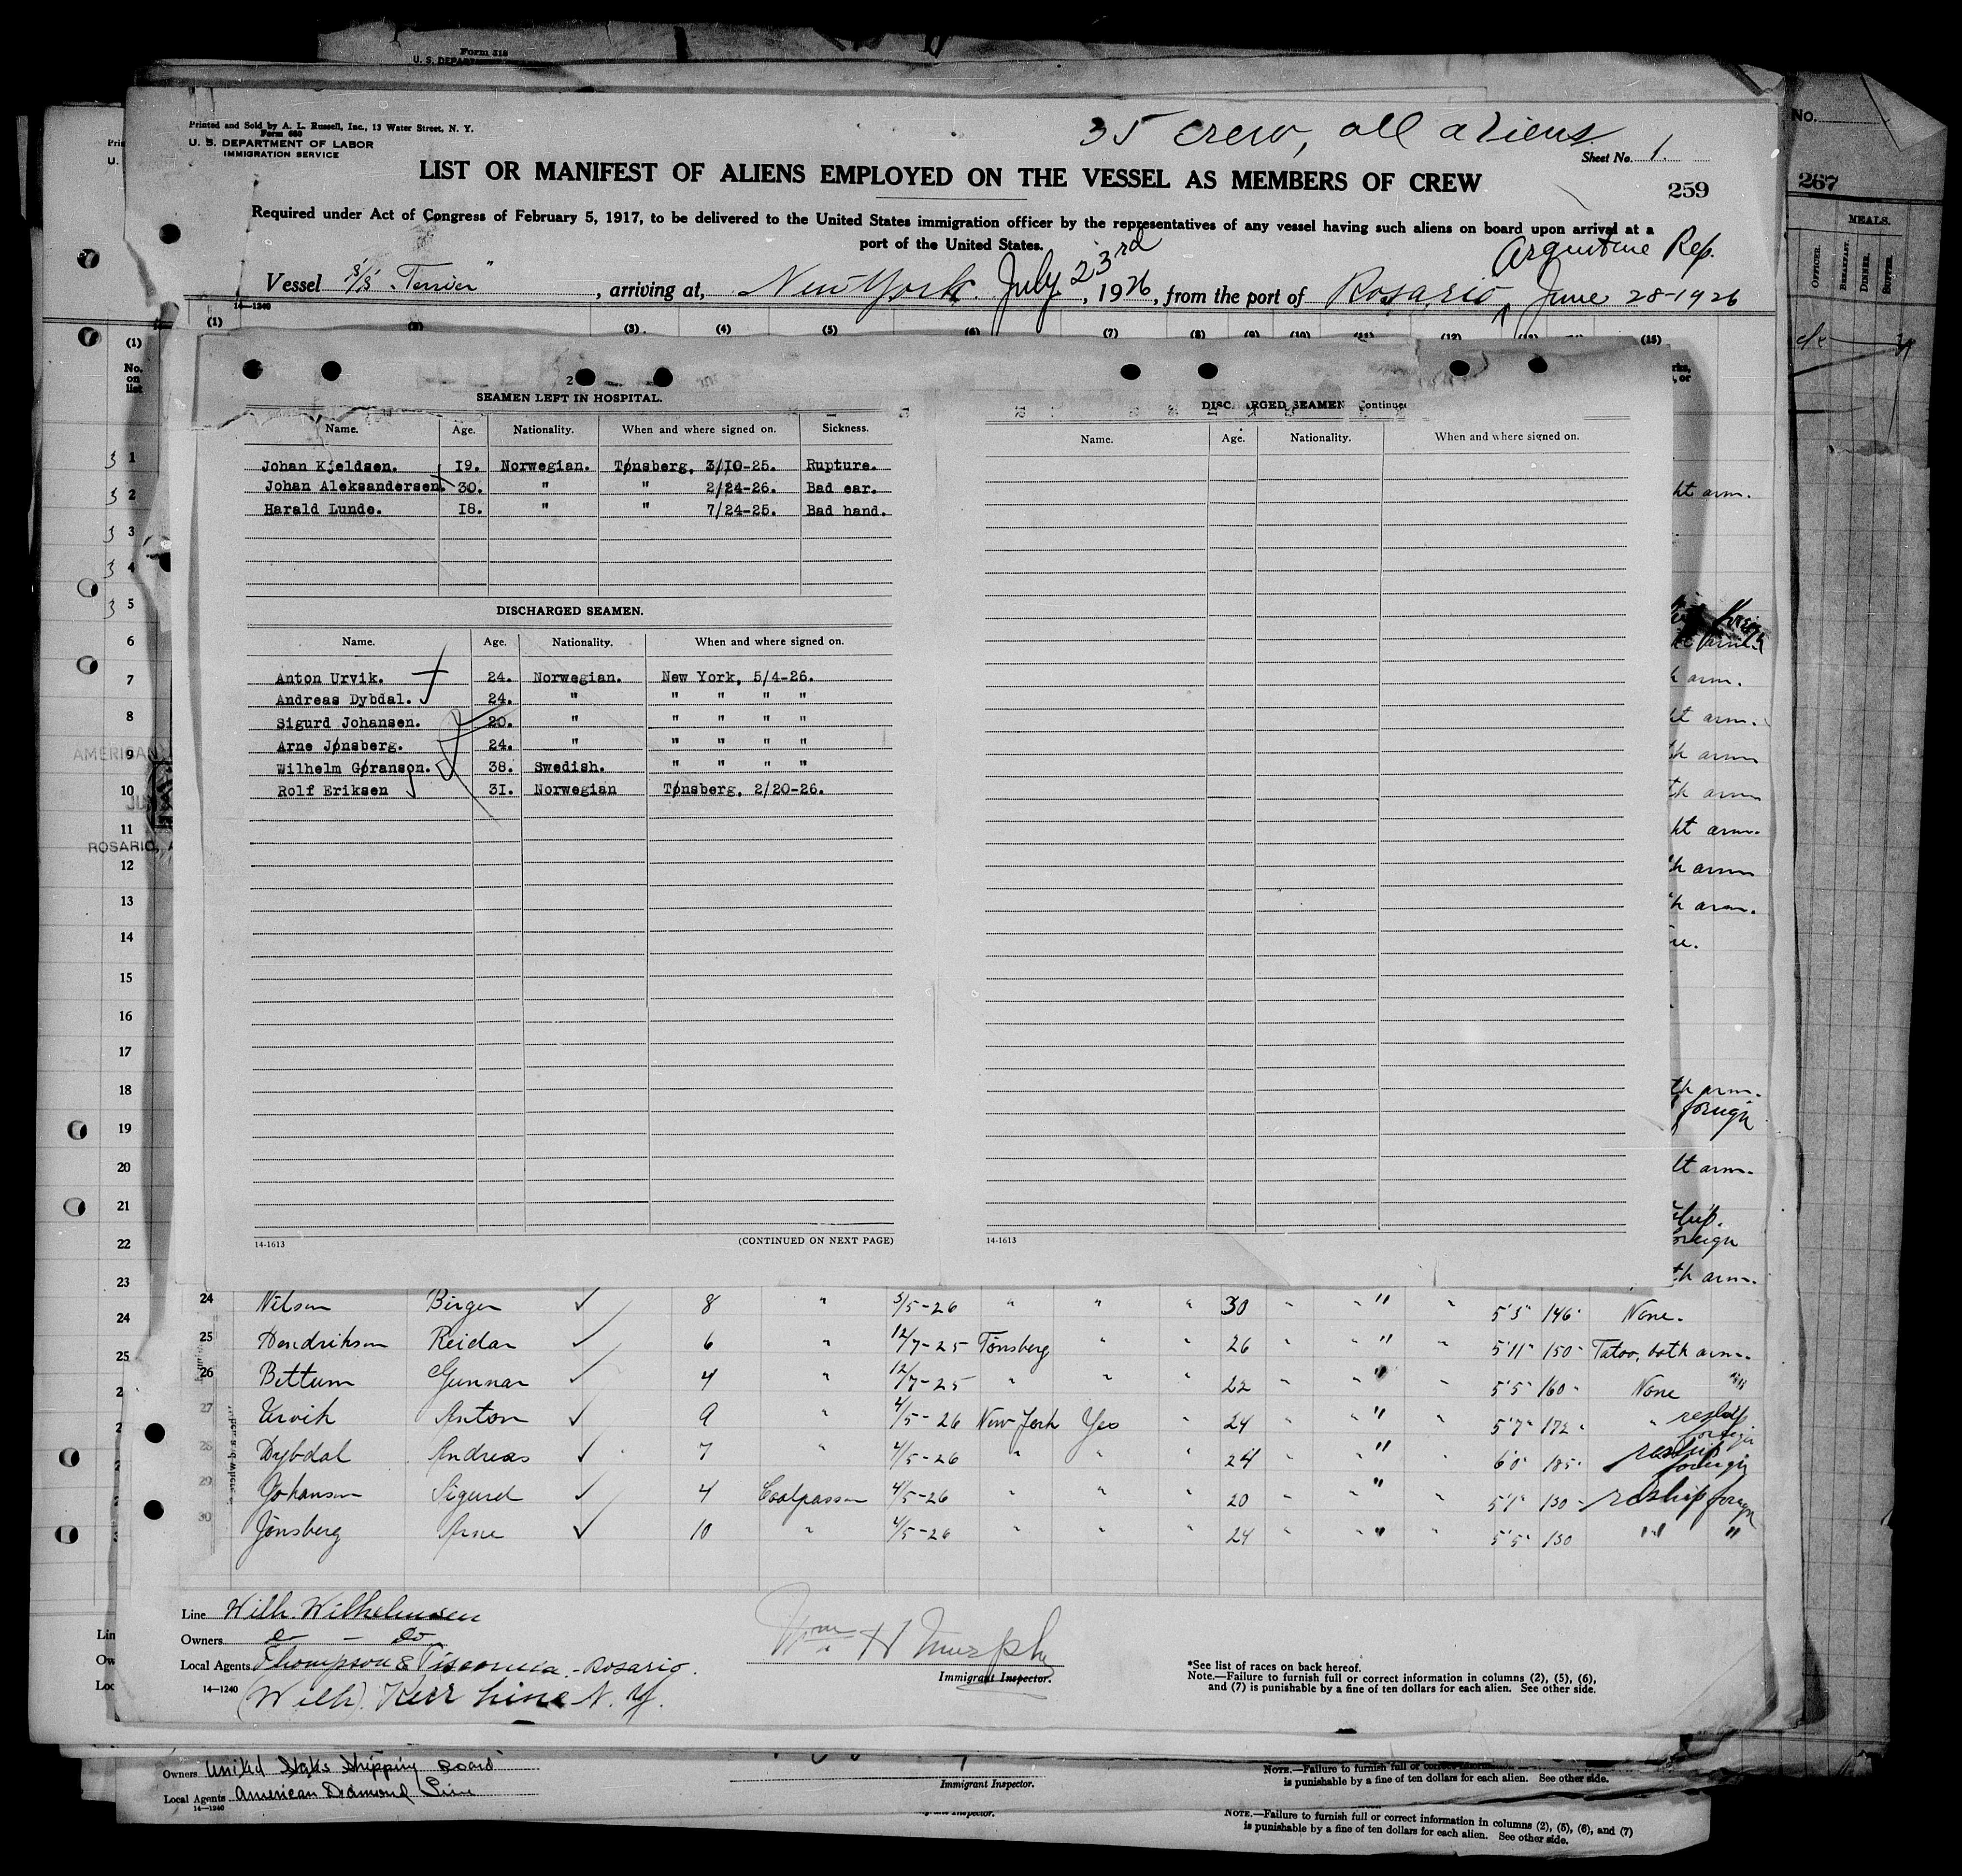 Form 318
U. S. DEPARTMENT
Printed and Sold by A. L. Russell, Inc., 13 Water Street, N. Y.
Form 680
U. S. DEPARTMENT OF LABOR
IMMIGRATION SERVICE
35 crew, all aliens.
Sheet No. 1.
LIST OR MANIFEST OF ALIENS EMPLOYED ON THE VESSEL AS MEMBERS OF CREW
259
No.
267
Required under Act of Congress of February 5, 1917, to be delivered to the United States immigration officer by the representatives of any vessel having such aliens on board upon arrival at a
port of the United States.
MEALS.
OFFICER. BREAKFAST. DINNER. SUPPER.
Argentine Rep.
Vessel S/S "Terrier", arriving at, New York. July 23rd, 1926, from the port of Rosario ^ June 28-1926
14-1240
(1) (2) (3) (4) (5) (6) (7) (8) (9) (10) (11) (12) (15)
(1)
No. on list
2
SEAMEN LEFT IN HOSPITAL.
Name. Age. Nationality. When and where signed on. Sickness.
Johan Kjeldsen. 19. Norwegian. Tønsberg, 3/10-25. Rupture.
Johan Aleksandersen. 30. " " 2/24-26. Bad ear.
Harald Lunde. 18. " " 7/24-25. Bad hand.
DISCHARGED SEAMEN.
Name. Age. Nationality. When and where signed on.
Anton Urvik. 24. Norwegian. New York, 5/4-26.
Andreas Dybdal. 24. " " " " "
Sigurd Johansen. 20. " " " " "
Arne Jønsberg. 24. " " " " "
Wilhelm Gøranson. 38. Swedish. " " " "
Rolf Eriksen 31. Norwegian Tønsberg, 2/20-26.
14-1613 (CONTINUED ON NEXT PAGE)
DISCHARGED SEAMEN Continued
Name. Age. Nationality. When and where signed on.
14-1613
1
2
3
4
5
6
7
8
9
10
11
12
13
14
15
16
17
18
19
20
21
22
23
24
25
AMERICAN
ROSARIO, A
24 Nilsen Birger 8 " 3/5-26 " " " 30 " " " 5'3" 146 None.
25 Hendriksen Reidar 6 " 12/7-25 Tønsberg " " 26 " " " 5'11" 150 Tatoo, both arms.
26 Bettum Gunnar 4 " 12/7-25 " " " 22 " " " 5'5" 160 None
27 Urvik Anton 9 " 4/5-26 New York Yes " 24 " " 5'7" 172 " reship foreign
28 Dybdal Andreas 7 " 4/5-26 " " 24 " " " 6'0" 185 reship foreign
29 Johansen Sigurd 4 Coalpasser 4/5-26 " " " 20 " " " 5'1" 130 reship foreign
30 Jønsberg Arne 10 " 4/5-26 " " " 24 " " " 5'5" 130 " "
Line Wilh. Wilhelmsen
Owners do - do
Local Agents Thompson & - Rosario.
14-1240 (Wilh). Kerr Line N. Y.
Wm H Murphy
Immigrant Inspector.
*See list of races on back hereof.
Note.—Failure to furnish full or correct information in columns (2), (5), (6),
and (7) is punishable by a fine of ten dollars for each alien. See other side.
Owners United States Shipping Board
Local Agents American Diamond Line
14-1240
Immigrant Inspector.
NOTE.—Failure to furnish full or correct information
is punishable by a fine of ten dollars for each alien. See other side.
NOTE.—Failure to furnish full or correct information in columns (2), (5), (6), and (7)
is punishable by a fine of ten dollars for each alien. See other side.